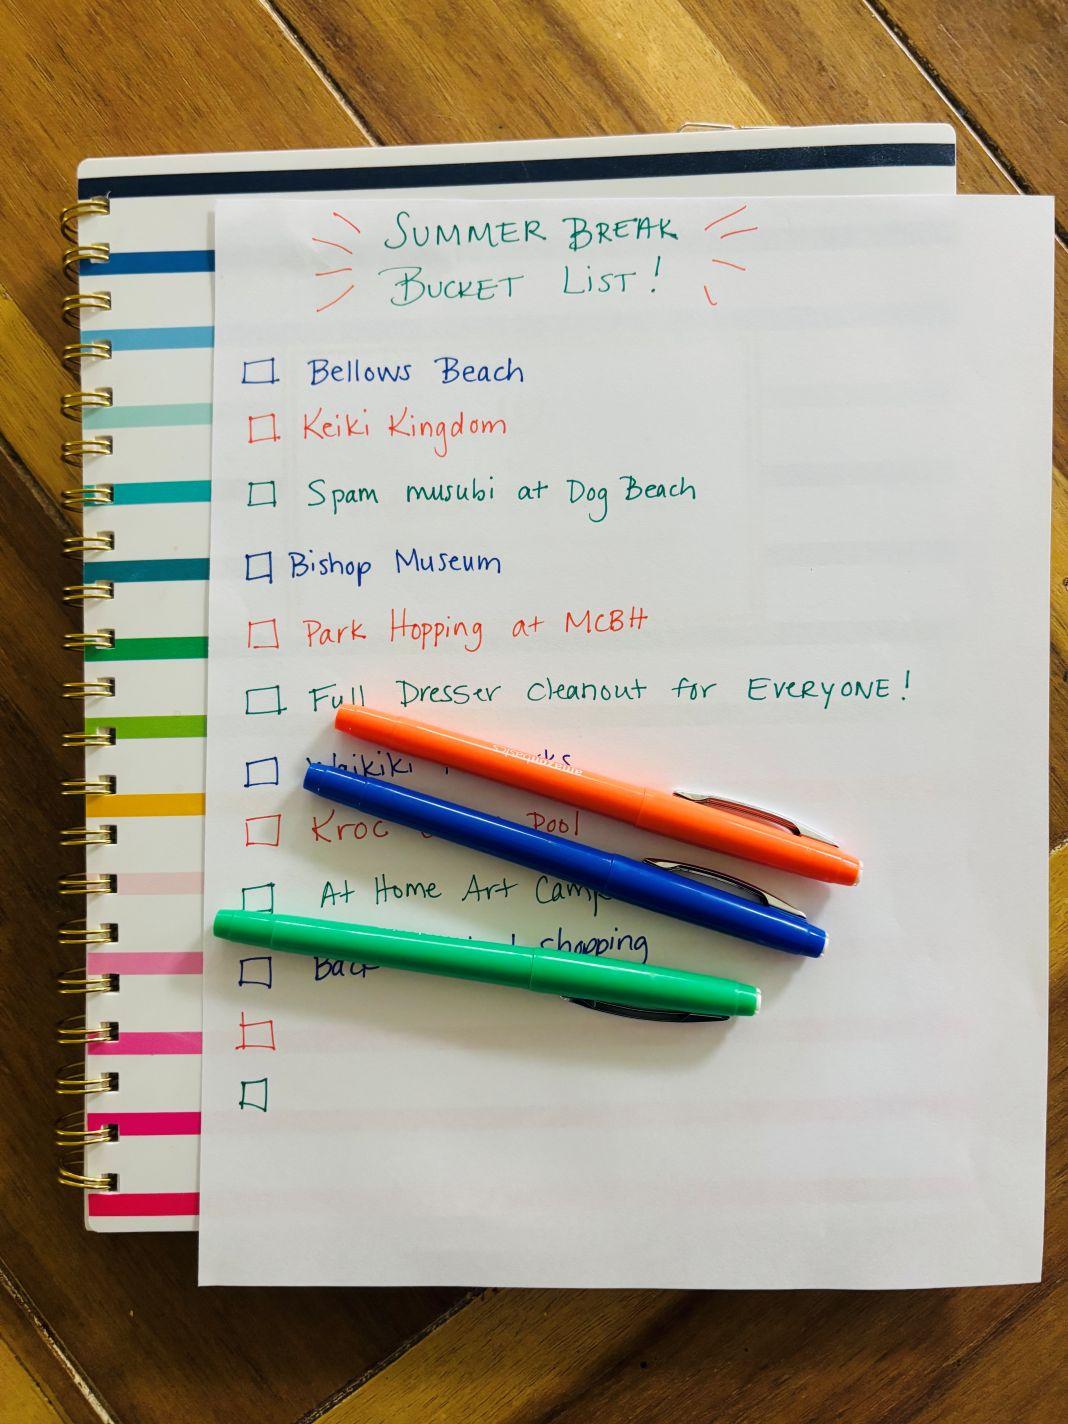 SUMMER BREAK
BUCKET LIST!
Bellows Beach
Keiki Kingdom
Spam musubi at Dog Beach
Bishop Museum
Park Hopping at MCBH
Full Dresser cleanout for EVERYONE!
Waikiki
Kroc Pool
At Home Art Camp
shopping
amazonbasics